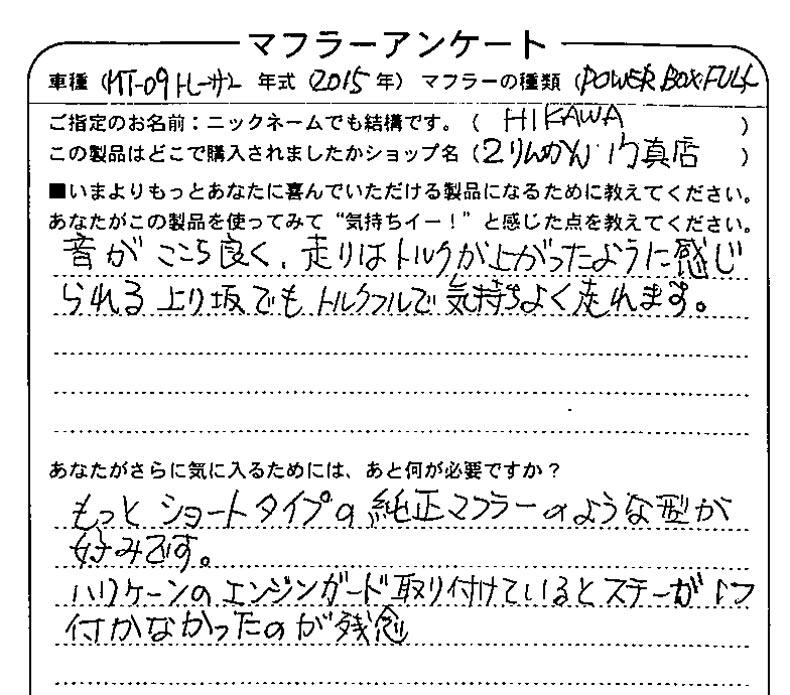 マフラーアンケート
車種（MT-09トレーサー 年式（2015年） マフラーの種類（POWER BOX FULL
ご指定のお名前：ニックネームでも結構です。（ HIKAWA ）
この製品はどこで購入されましたかショップ名（2りんかん 門真店 ）
■いまよりもっとあなたに喜んでいただける製品になるために教えてください。
あなたがこの製品を使ってみて“気持ちイー！”と感じた点を教えてください。
音が ここち良く、走りはトルクが上がったように感じ
られる 上り坂でも トルクフルで気持ちよく走れます。
あなたがさらに気に入るためには、あと何が必要ですか？
もっと ショートタイプの 純正マフラーのような型が
好みです。
ハリケーンの エンジンガード取り付けていると ステーが 1つ
付かなかったのが残念